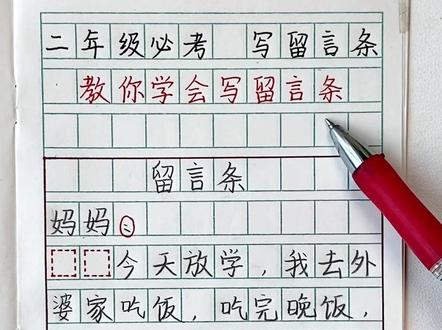 二年级必考 写留言条
教你学会写留言条
留言条
妈妈:
今天放学,我去外
婆家吃饭,吃完晚饭,